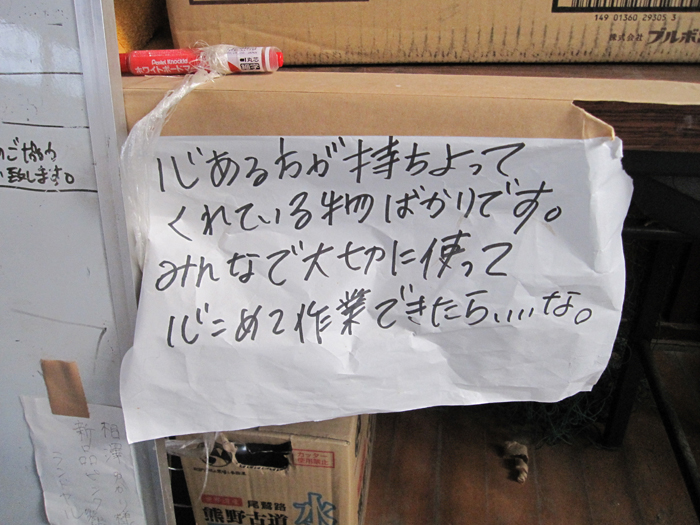 149 01360 29305 3
株式会社 ブルボン
Pentel Knockle
ホワイトボードマ
丸芯
心ある方が持ちよって
くれている物ばかりです。
みんなで大切に使って
心こめて作業できたらいいな。
致します。
カッター
使用禁止
尾鷲路
熊野古道
水